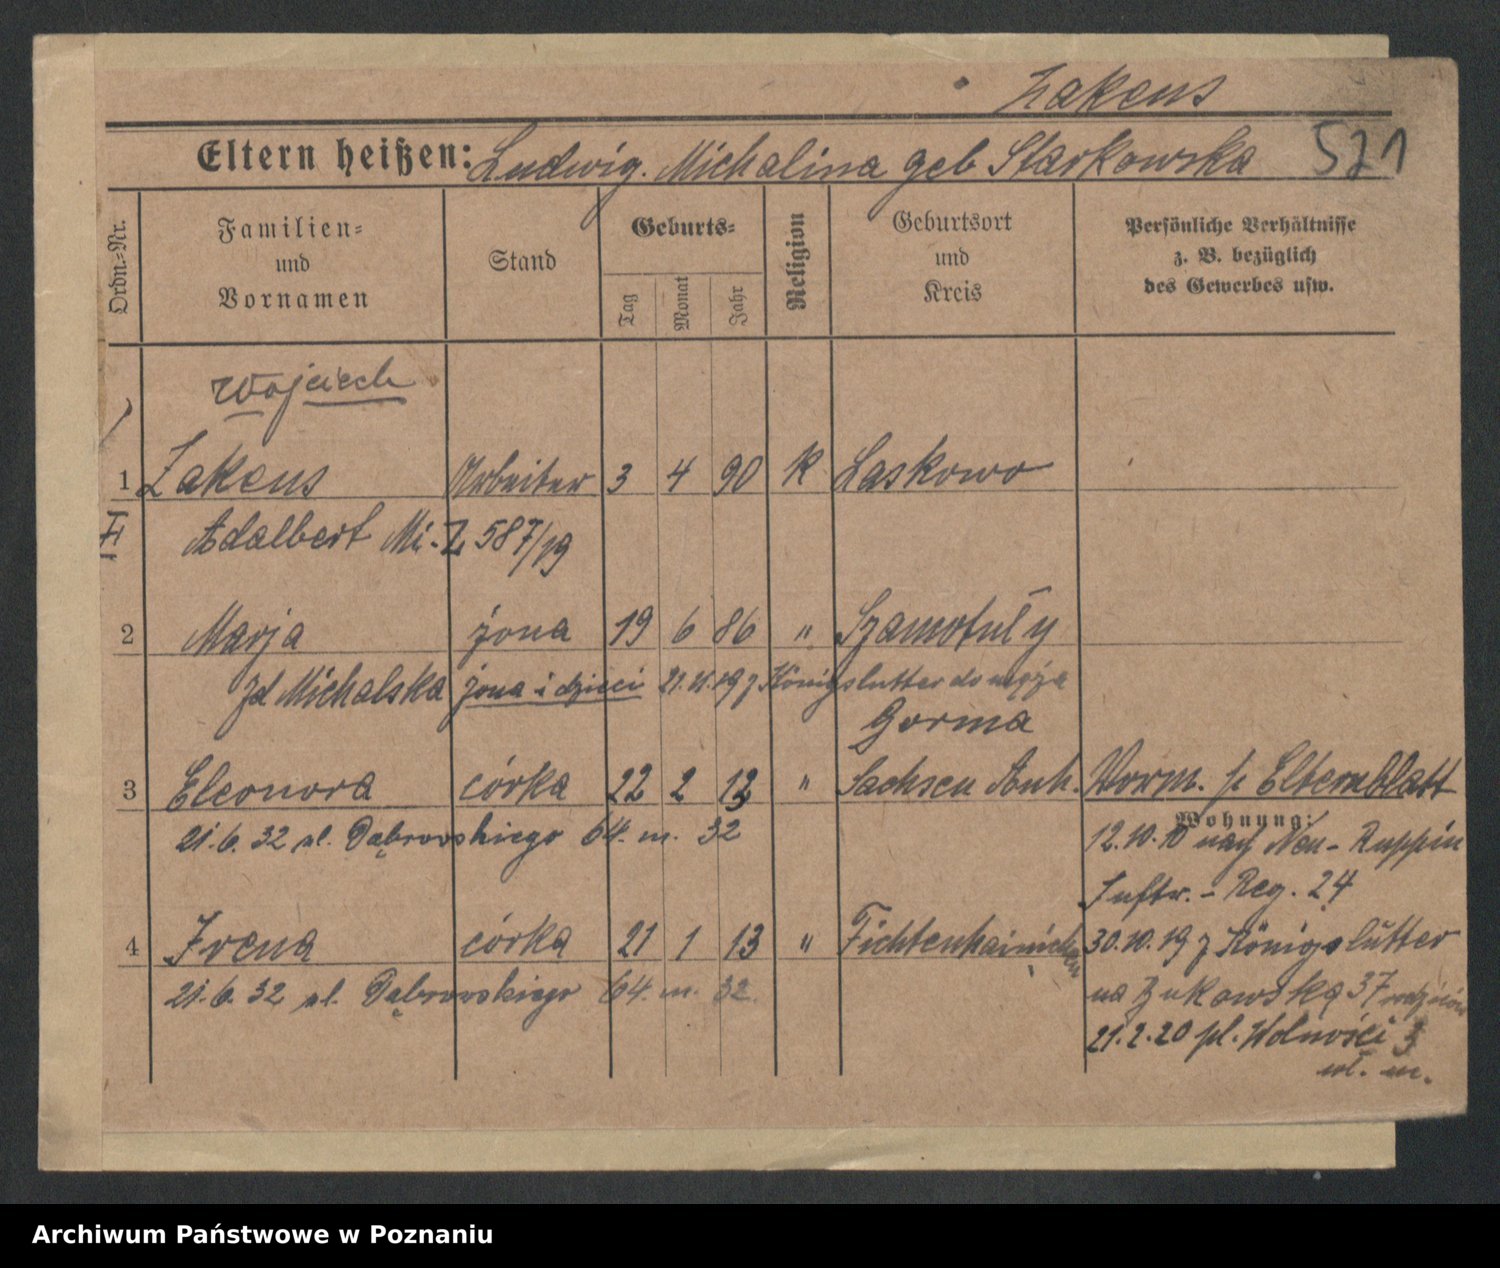 Żakens
Eltern heißen: Ludwig. Michalina geb Starkowska 571
Ordn.-Nr.
Familien- und Vornamen
Stand
Geburts-
Tag
Monat
Jahr
Religion
Geburtsort und Kreis
Persönliche Verhältnisse z. B. bezüglich des Gewerbes usw.
Wojciech
1 Żakens Arbeiter 3 4 90 K Laskowo
Adalbert Mi-Z 587/19
2 Marja żona 19 6 86 " Szamotuły
zd Michalska żona i dzieci 21.11.19 z Königslutter do męża
Gorma
3 Eleonora córka 22 2 12 " Sachsen Anh. Vorm. s Elternblatt
Wohnung:
21.6.32 ul. Dąbrowskiego 64. m. 32
12.10.10 nach Neu-Ruppin
Inftr.-Reg. 24
4 Irena córka 21 1 13 " Fichtenhainichen
30.10.19 z Königslutter
21.6.32 ul. Dąbrowskiego 64. m. 32.
na Żukowską 37 rodziców
21.2.20 pl. Wolności 3
wł. m.
Archiwum Państwowe w Poznaniu